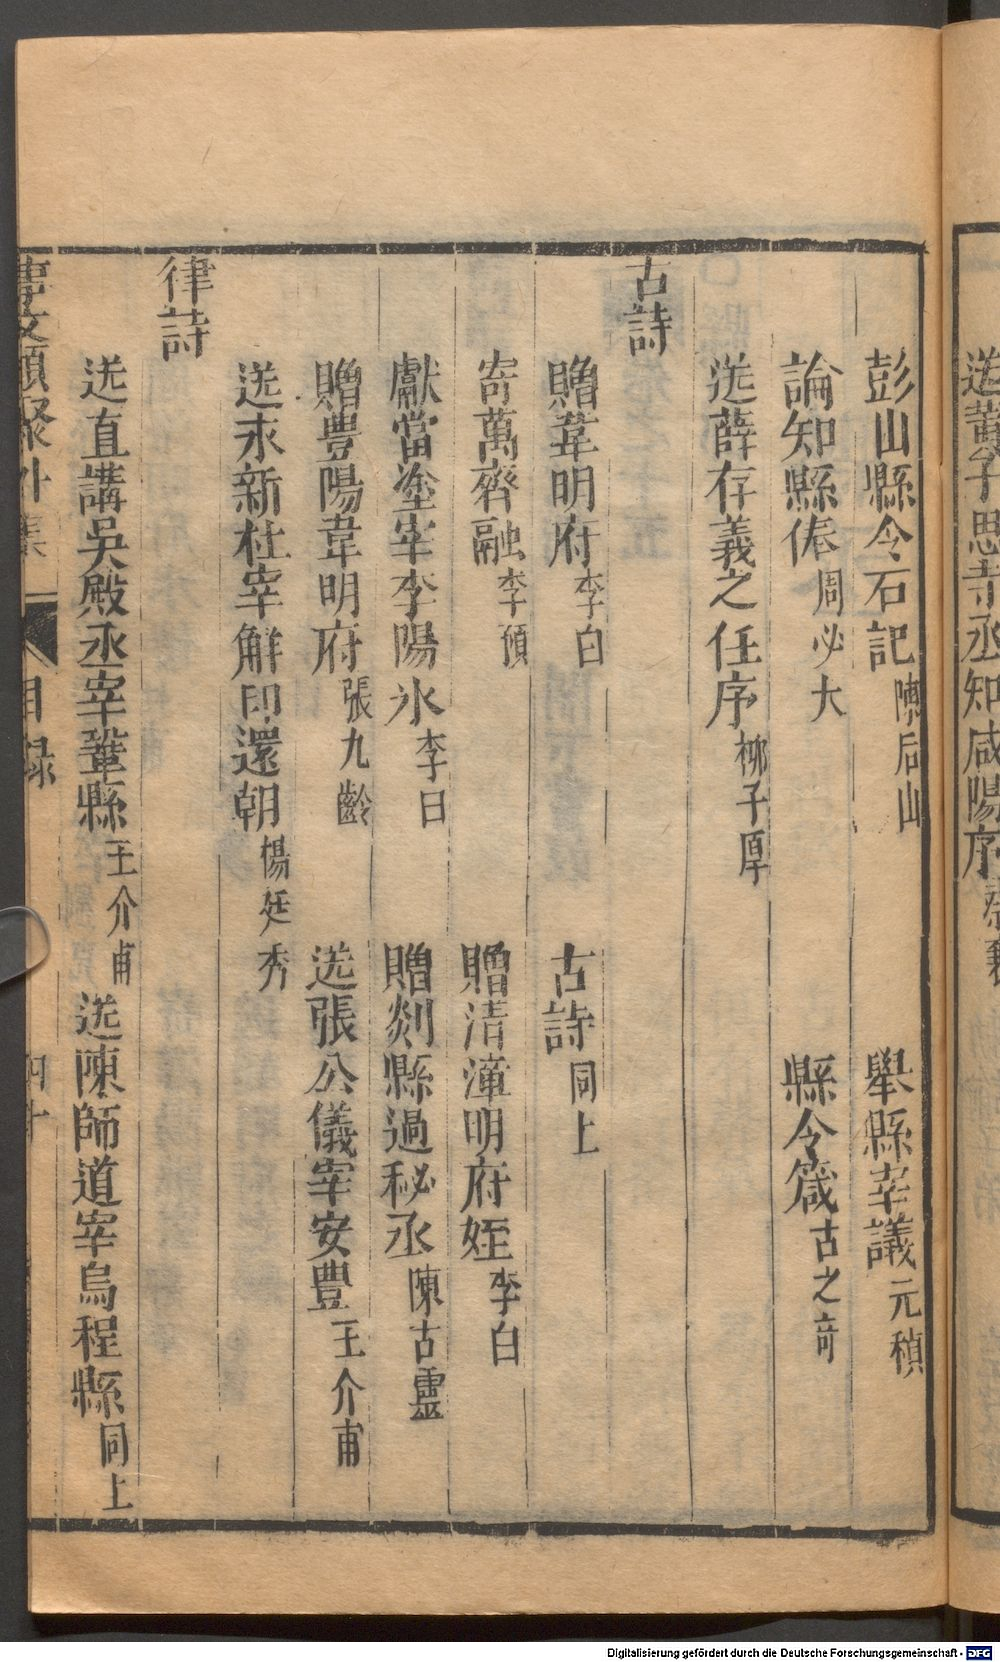 送黃子思寺丞知咸陽序蔡襄
彭山縣令石記陳后山 舉縣宰議元稹
論知縣俸周必大 縣令箴古之奇
送薛存義之任序柳子厚
古詩
贈韋明府李白 古詩同上
寄萬齊融李頎 贈清漳明府姪李白
獻當塗宰李陽氷李白 贈剡縣過秘丞陳古靈
贈豊陽韋明府張九齡 送張公儀宰安豊王介甫
送永新杜宰解印還朝楊廷秀
律詩
送直講吳殿丞宰鞏縣王介甫 送陳師道宰烏程縣同上
事文類聚外集 目録 四十
Digitalisierung gefördert durch die Deutsche Forschungsgemeinschaft - DFG